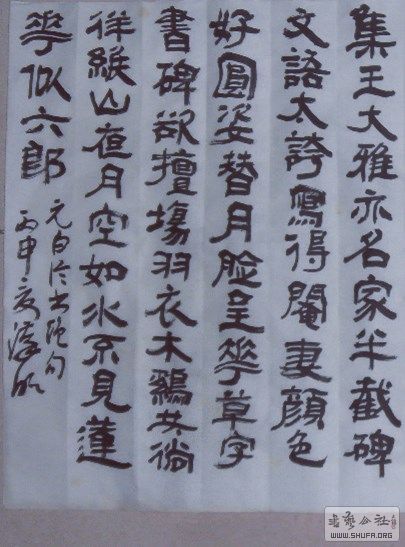 集王大雅亦名家半截碑
文語太誇寫得閹妻顏色
好圓姿替月臉呈華草字
書碑欲擅場羽衣木鶴共徜
徉緱山夜月空如水不見蓮
華似六郎
元白论书绝句
丙申夏
书艺公社
WWW.SHUFA.ORG